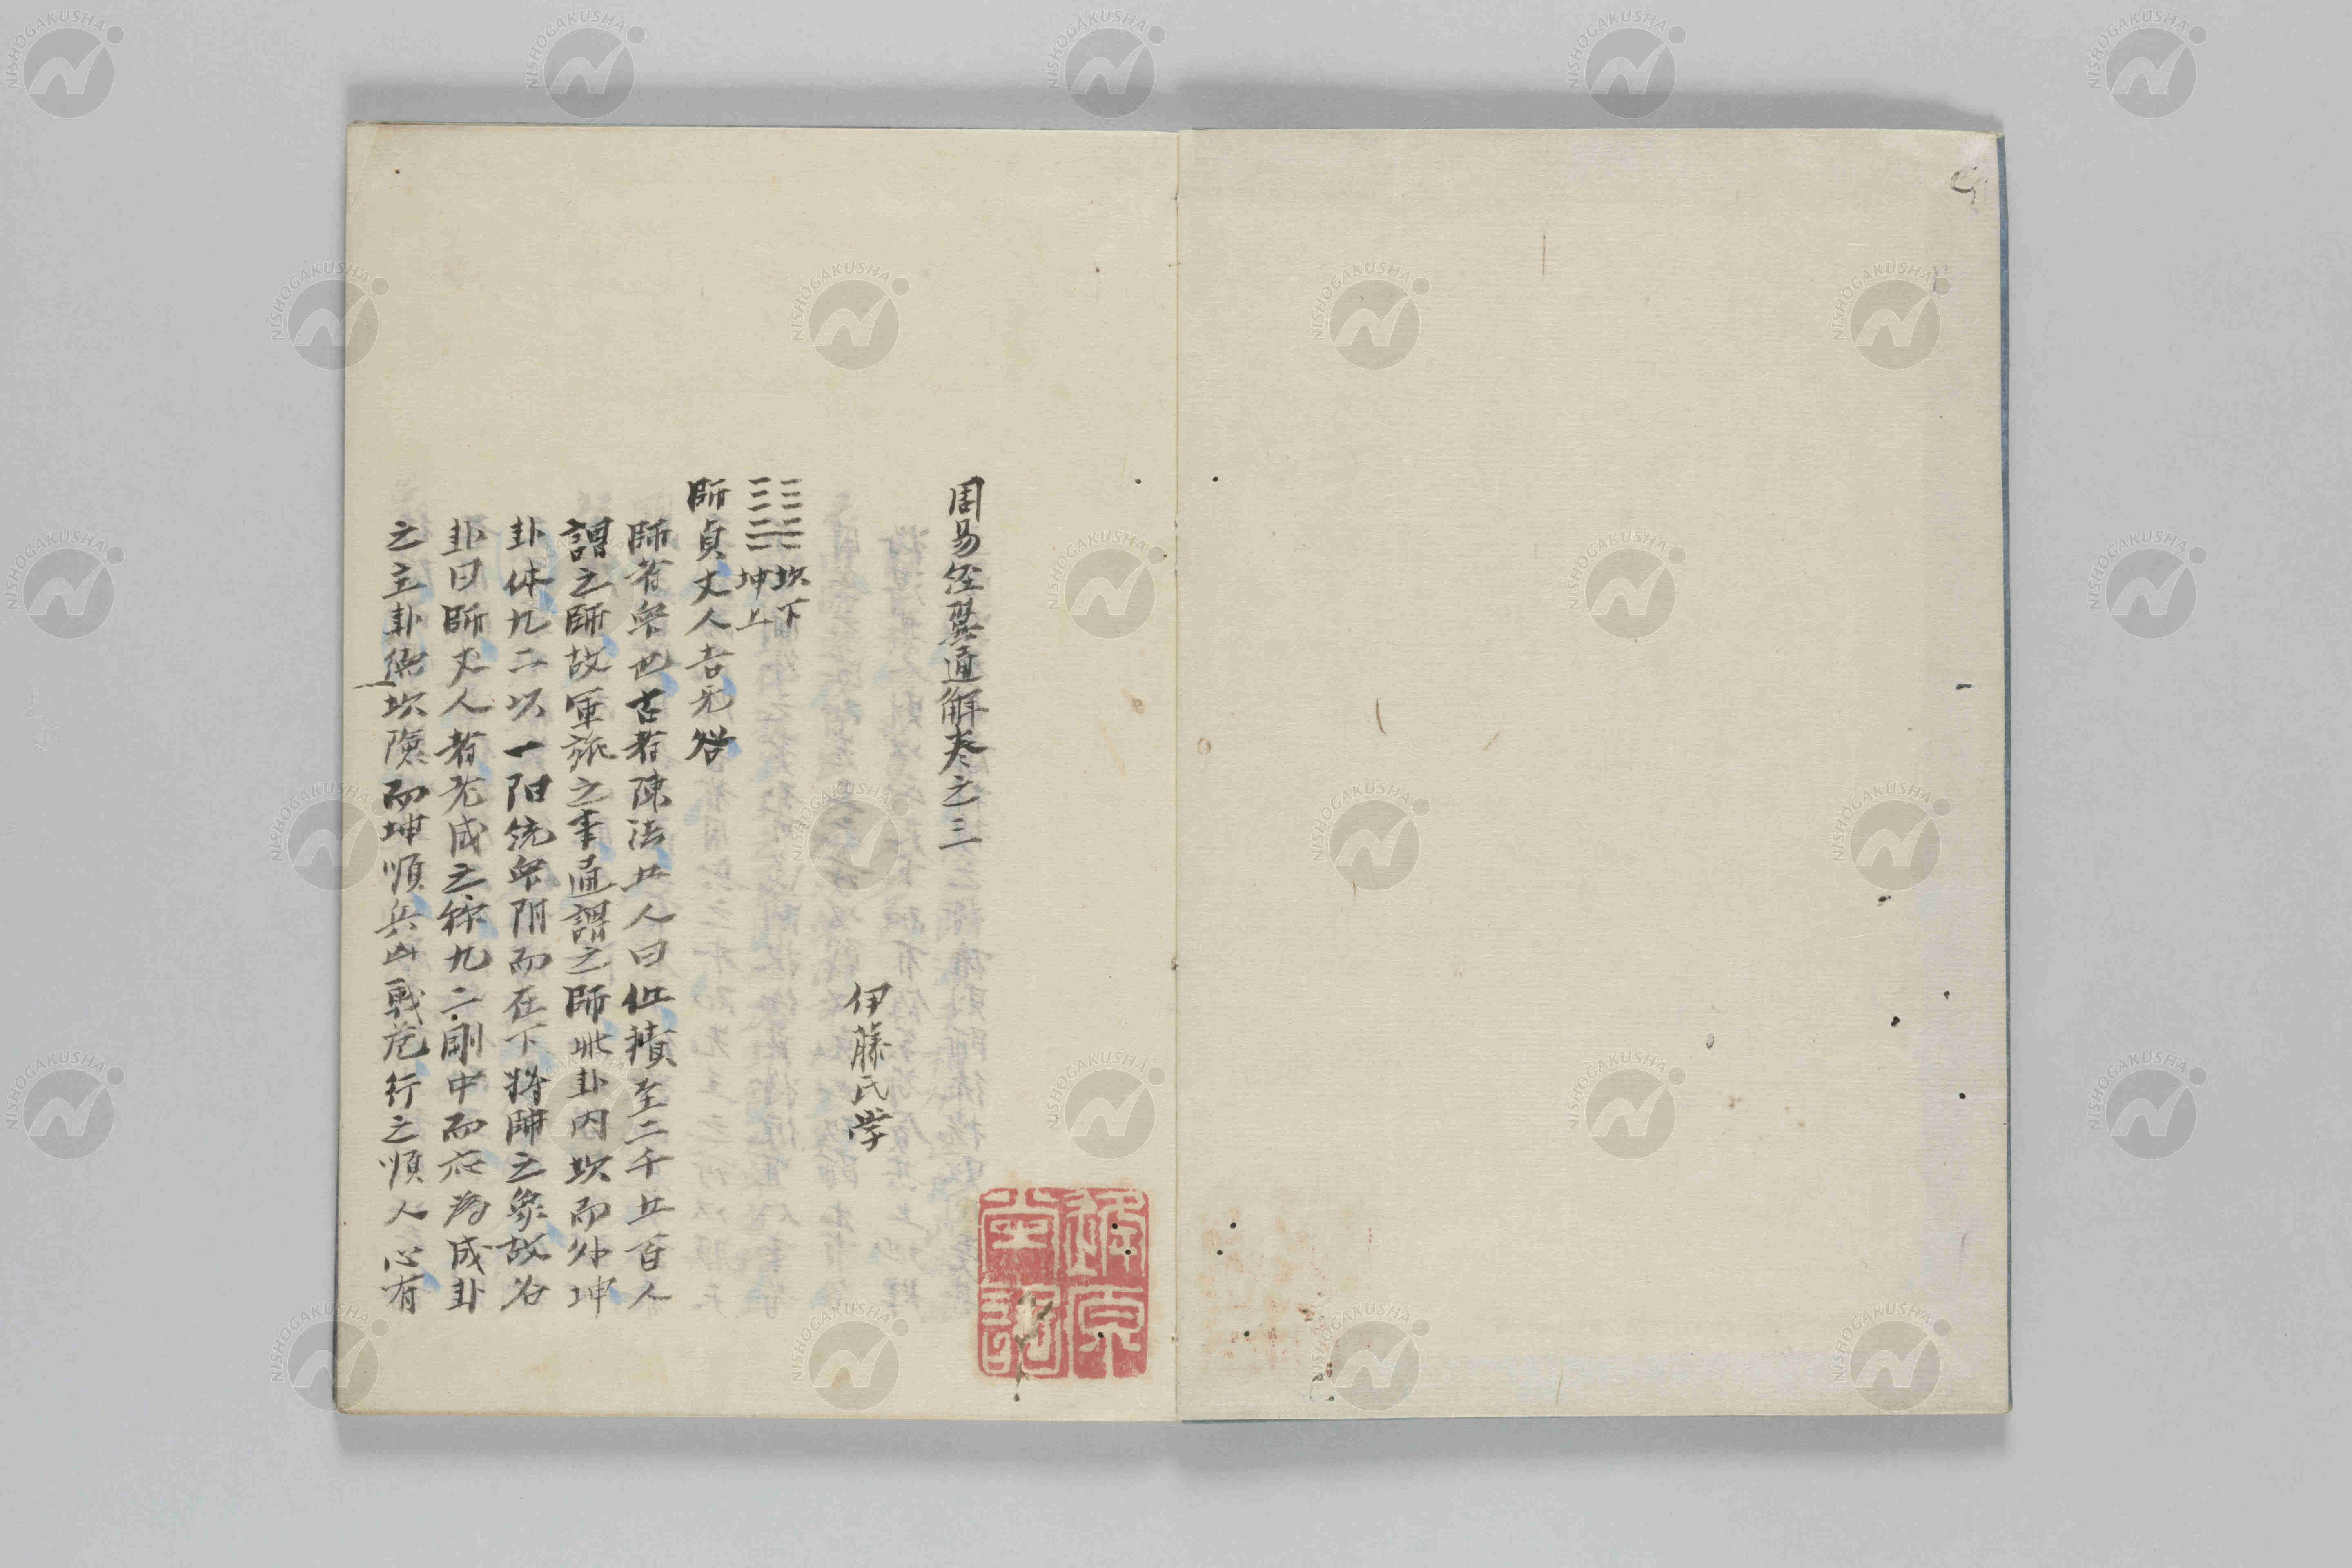 周易経翼通解巻之三
伊藤氏学
坎下
坤上
師貞丈人吉无咎
師者衆也古者陳法五人曰伍積至二千五百人
謂之師故軍旅之事通謂之師此卦内坎而外坤
卦体九二以一阳統衆阴而在下将師之象故名
卦曰師丈人者老成之称九二剛中而応為成卦
之主卦徳坎険而坤順兵凶戦危行之順人心有
NISHOGAKUSHA